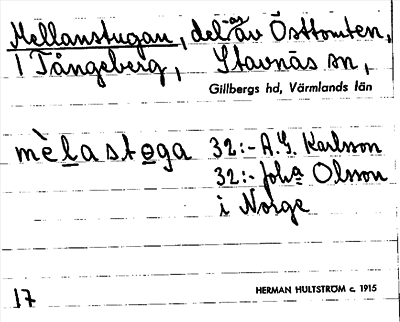 Mellanstugan, del av Östtomten,
1 Tångeberg, Stavnäs sn,
Gillbergs hd, Värmlands län
mèlastoga 32:- A.G. Karlsson
32:- Joha Olsson
i Norge
17 HERMAN HULTSTRÖM c. 1915